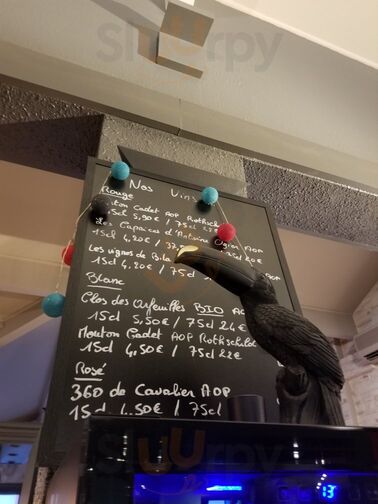 Nos Vins
Rouge
Mouton Cadet AOP Rothschild
15cl 5,90€ / 75cl
Les Caprices d'Antoine Ogier AOP
15cl 4,20€ /
Les vignes de Bila
15cl 4,20€ / 75cl
Blanc
Clos des Orfeuilles BIO
15cl 5,50€ / 75cl 24€
Mouton Cadet AOP Rothschild
15cl 4,50€ / 75cl 22€
Rosé
360 de Cavalier AOP
15cl 4.50€ / 75cl
Slurpy
Slurpy
13